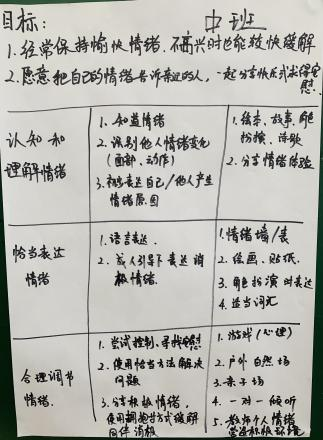 目标: 中班
1.经常保持愉快情绪.不高兴时也能较快缓解
2.愿意把自己的情绪告诉亲近的人,一起分享快乐或求得安
慰.
认知和
理解情绪
1.知道情绪
2.识别他人情绪变化
(面部、动作)
3.初步表达自己/他人产生
情绪原因
1.绘本、故事、角色
扮演、诗歌
2.分享情绪体验
恰当表达
情绪
1.语言表达.
2.成人引导下表达消
极情绪.
1.情绪墙/表
2.绘画、贴纸.
3.角色扮演时表达
4.适当词汇
合理调节
情绪.
1.尝试控制、寻找安慰
2.使用恰当方法解决
问题
3.分享积极情绪,
使用拥抱等方式缓解
同伴消极
1.游戏(心理)
2.户外自然场
3.亲子场
4.一对一倾听
5.教师个人情绪